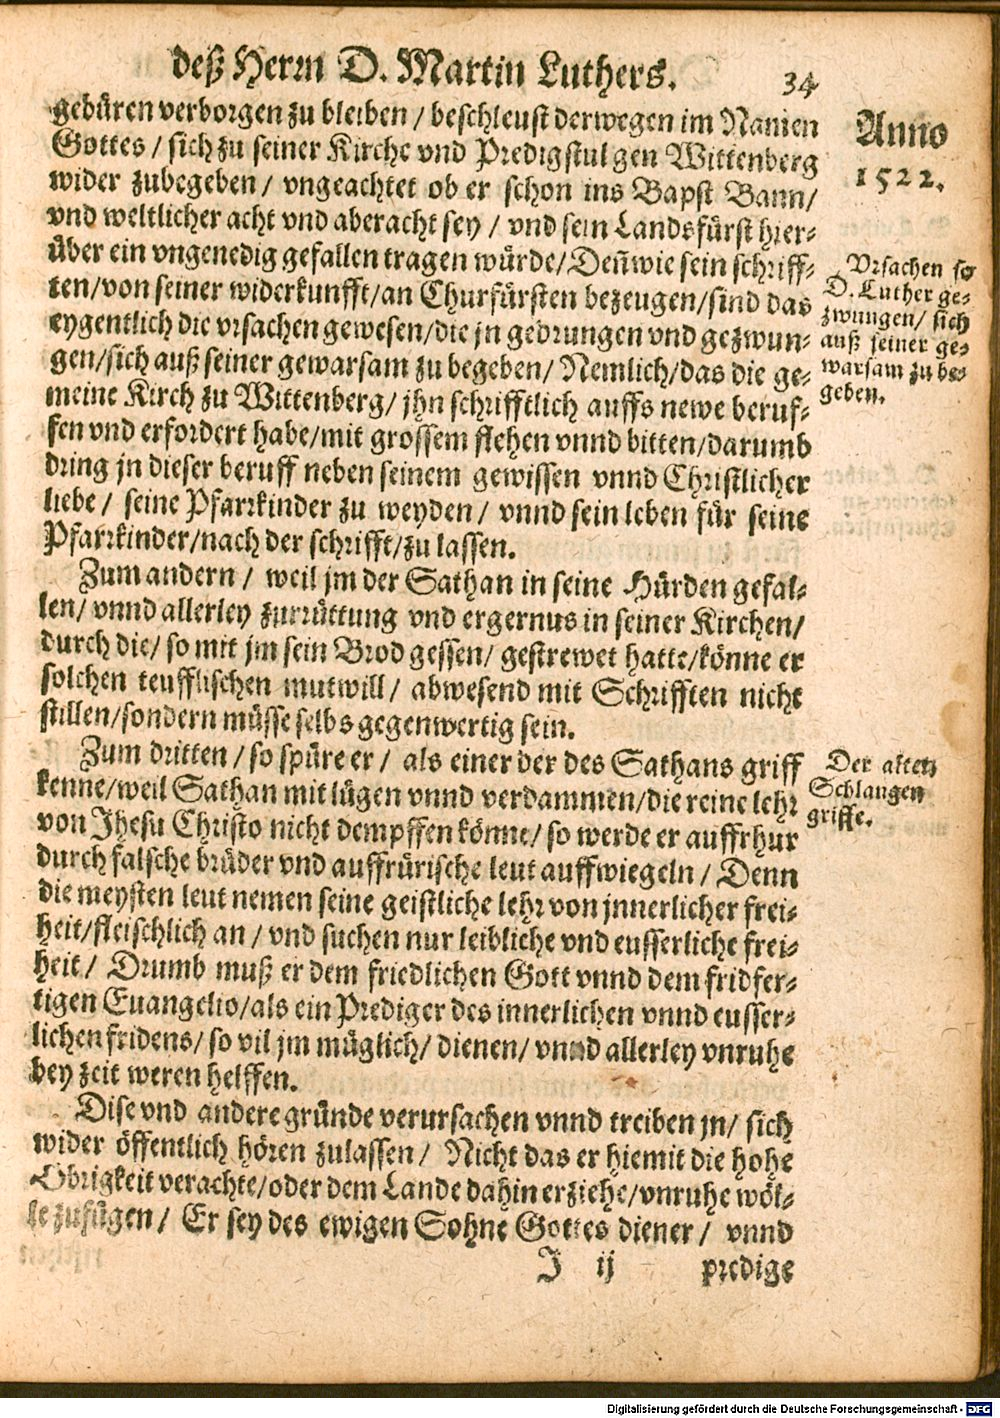 deß Herrn D. Martin Luthers. 34
gebüren verborgen zu bleiben / beschleust derwegen im Namen
Gottes / sich zu seiner Kirche vnd Predigstul gen Wittenberg
wider zubegeben / vngeachtet ob er schon ins Bapst Bann /
vnd weltlicher acht vnd aberacht sey / vnd sein Landsfürst hier-
über ein vngenedig gefallen tragen würde / Deñ wie sein schriff-
ten / von seiner widerkunfft / an Churfürsten bezeugen / sind das
eygentlich die vrsachen gewesen / die jn gedrungen vnd gezwun-
gen / sich auß seiner gewarsam zu begeben / Nemlich / das die ge-
meine Kirch zu Wittenberg / jhn schrifftlich auffs newe beruf-
fen vnd erfordert habe / mit grossem flehen vnnd bitten / darumb
dring jn dieser beruff neben seinem gewissen vnnd Christlicher
liebe / seine Pfarrkinder zu weyden / vnnd sein leben für seine
Pfarrkinder / nach der schrifft / zu lassen.
Zum andern / weil jm der Sathan in seine Hürden gefal-
len / vnnd allerley zurrüttung vnd ergernus in seiner Kirchen /
durch die / so mit jm sein Brod gessen / gestrewet hatte / könne er
solchen teufflischen mutwill / abwesend mit Schrifften nicht
stillen / sondern müsse selbs gegenwertig sein.
Zum dritten / so spüre er / als einer der des Sathans griff
kenne / weil Sathan mit lügen vnnd verdammen / die reine lehr
von Jhesu Christo nicht dempffen könne / so werde er auffrhur
durch falsche brüder vnd auffrürische leut auffwiegeln / Denn
die meysten leut nemen seine geistliche lehr von jnnerlicher frei-
heit / fleischlich an / vnd suchen nur leibliche vnd eusserliche frei-
heit / Drumb muß er dem friedlichen Gott vnnd dem fridfer-
tigen Euangelio / als ein Prediger des innerlichen vnnd eusser-
lichen fridens / so vil jm müglich / dienen / vnnd allerley vnruhe
bey zeit weren helffen.
Dise vnd andere gründe verursachen vnnd treiben jn / sich
wider öffentlich hören zulassen / Nicht das er hiemit die hohe
Obrigkeit verachte / oder dem Lande dahin erziehe / vnruhe wöl-
le zufügen / Er sey des ewigen Sohne Gottes diener / vnnd
J ij predige
Anno
1522.
Vrsachen so
D. Luther ge-
zwungen / sich
auß seiner ge-
warsam zu be-
geben.
Der alten
Schlangen
griffe.
Digitalisierung gefördert durch die Deutsche Forschungsgemeinschaft - DFG